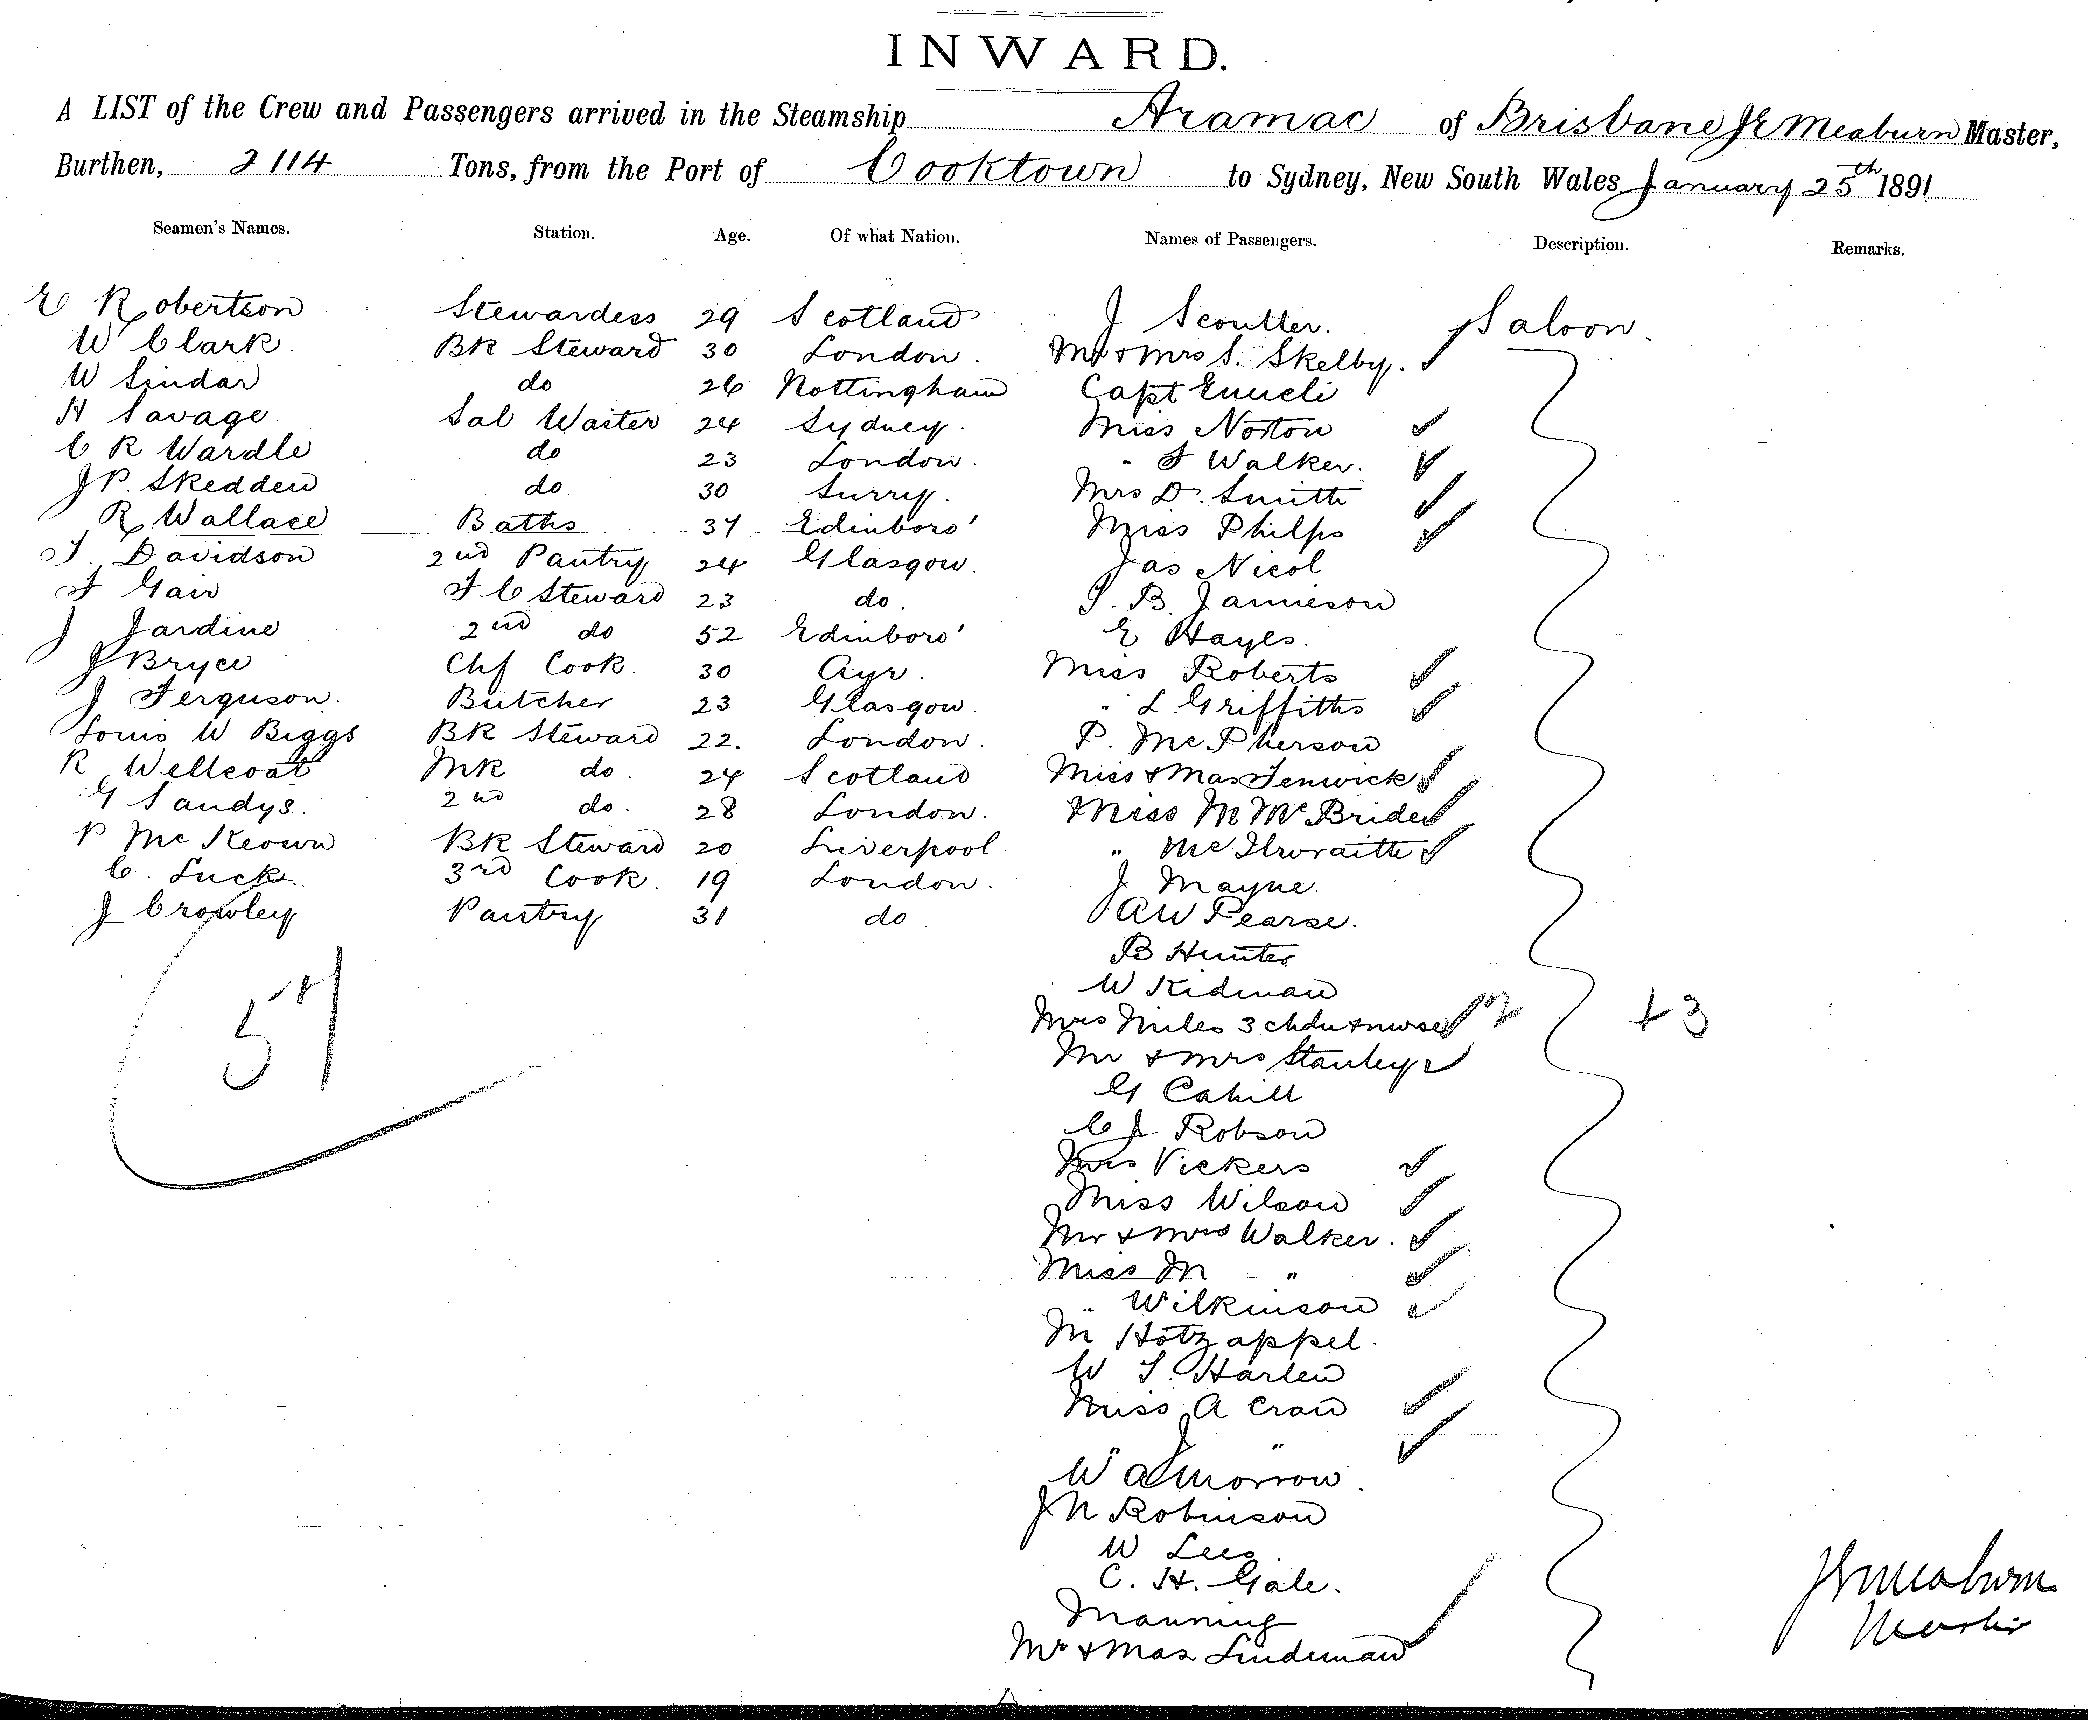 INWARD.
A LIST of the Crew and Passengers arrived in the Steamship Aramac of Brisbane J E Meaburn Master,
Burthen, 2114 Tons, from the Port of Cooktown to Sydney, New South Wales January 25th 1891
Seamen's Names. Station. Age. Of what Nation. Names of Passengers. Description. Remarks.
E Robertson Stewardess 29 Scotland J Scoutter. Saloon.
W Clark BK Steward 30 London. Mr & Mrs S. Skelby.
W Sindar do 26 Nottingham Capt
H Savage Sal Waiter 24 Sydney. Miss Norton
C R Wardle do 23 London. " F Walker.
J P. Skedden do 30 Surry. Mrs D. Smith
R Wallace Baths 37 Edinboro' Miss Philps
J. Davidson 2nd Pantry 24 Glasgow. Jas Nicol
F Gair F C Steward 23 do. S. B. Jamieson
J Jardine 2nd do 52 Edinboro' E Hayes.
J Bryce Chf Cook. 30 Ayr. Miss Roberts
J Ferguson. Butcher 23 Glasgow. " L Griffiths
Louis W Biggs BK Steward 22. London. P. McPherson
R Wellcoat MK do. 24 Scotland Miss & Mas Fenwick
G Sandys. 2nd do. 28 London. Miss M McBride
P McKeown BK Steward 20 Liverpool " McIlwraith
C. Luck 3rd Cook. 19 London. J Mayne.
J Crowley Pantry 31 do A W Pearse.
B Hunter
W Kidman
57
Mrs Miles 3 chdn & nurse 2 + 3
Mr & Mrs Stanley
G Cahill
C J Robson
Mrs Vickers
Miss Wilson
Mr & Mrs Walker.
Miss M "
" Wilkinson
M Hotzappel.
W S. Harlen
Miss A Cran
" J "
W A Morrow.
J N Robinson
W Lees.
C. H. Gale.
Manning
Mr & Mas Lindeman
J E Meaburn
Master